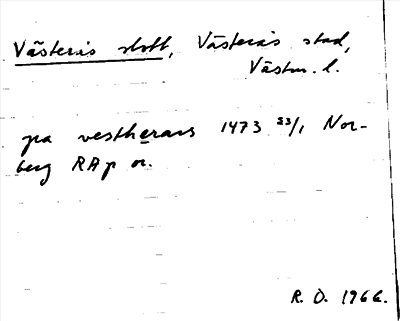 Västerås slott, Västerås stad,
Västm. l.
pa vestherars 1473 23/1 Nor-
berg RAp or.
R. O. 1966.